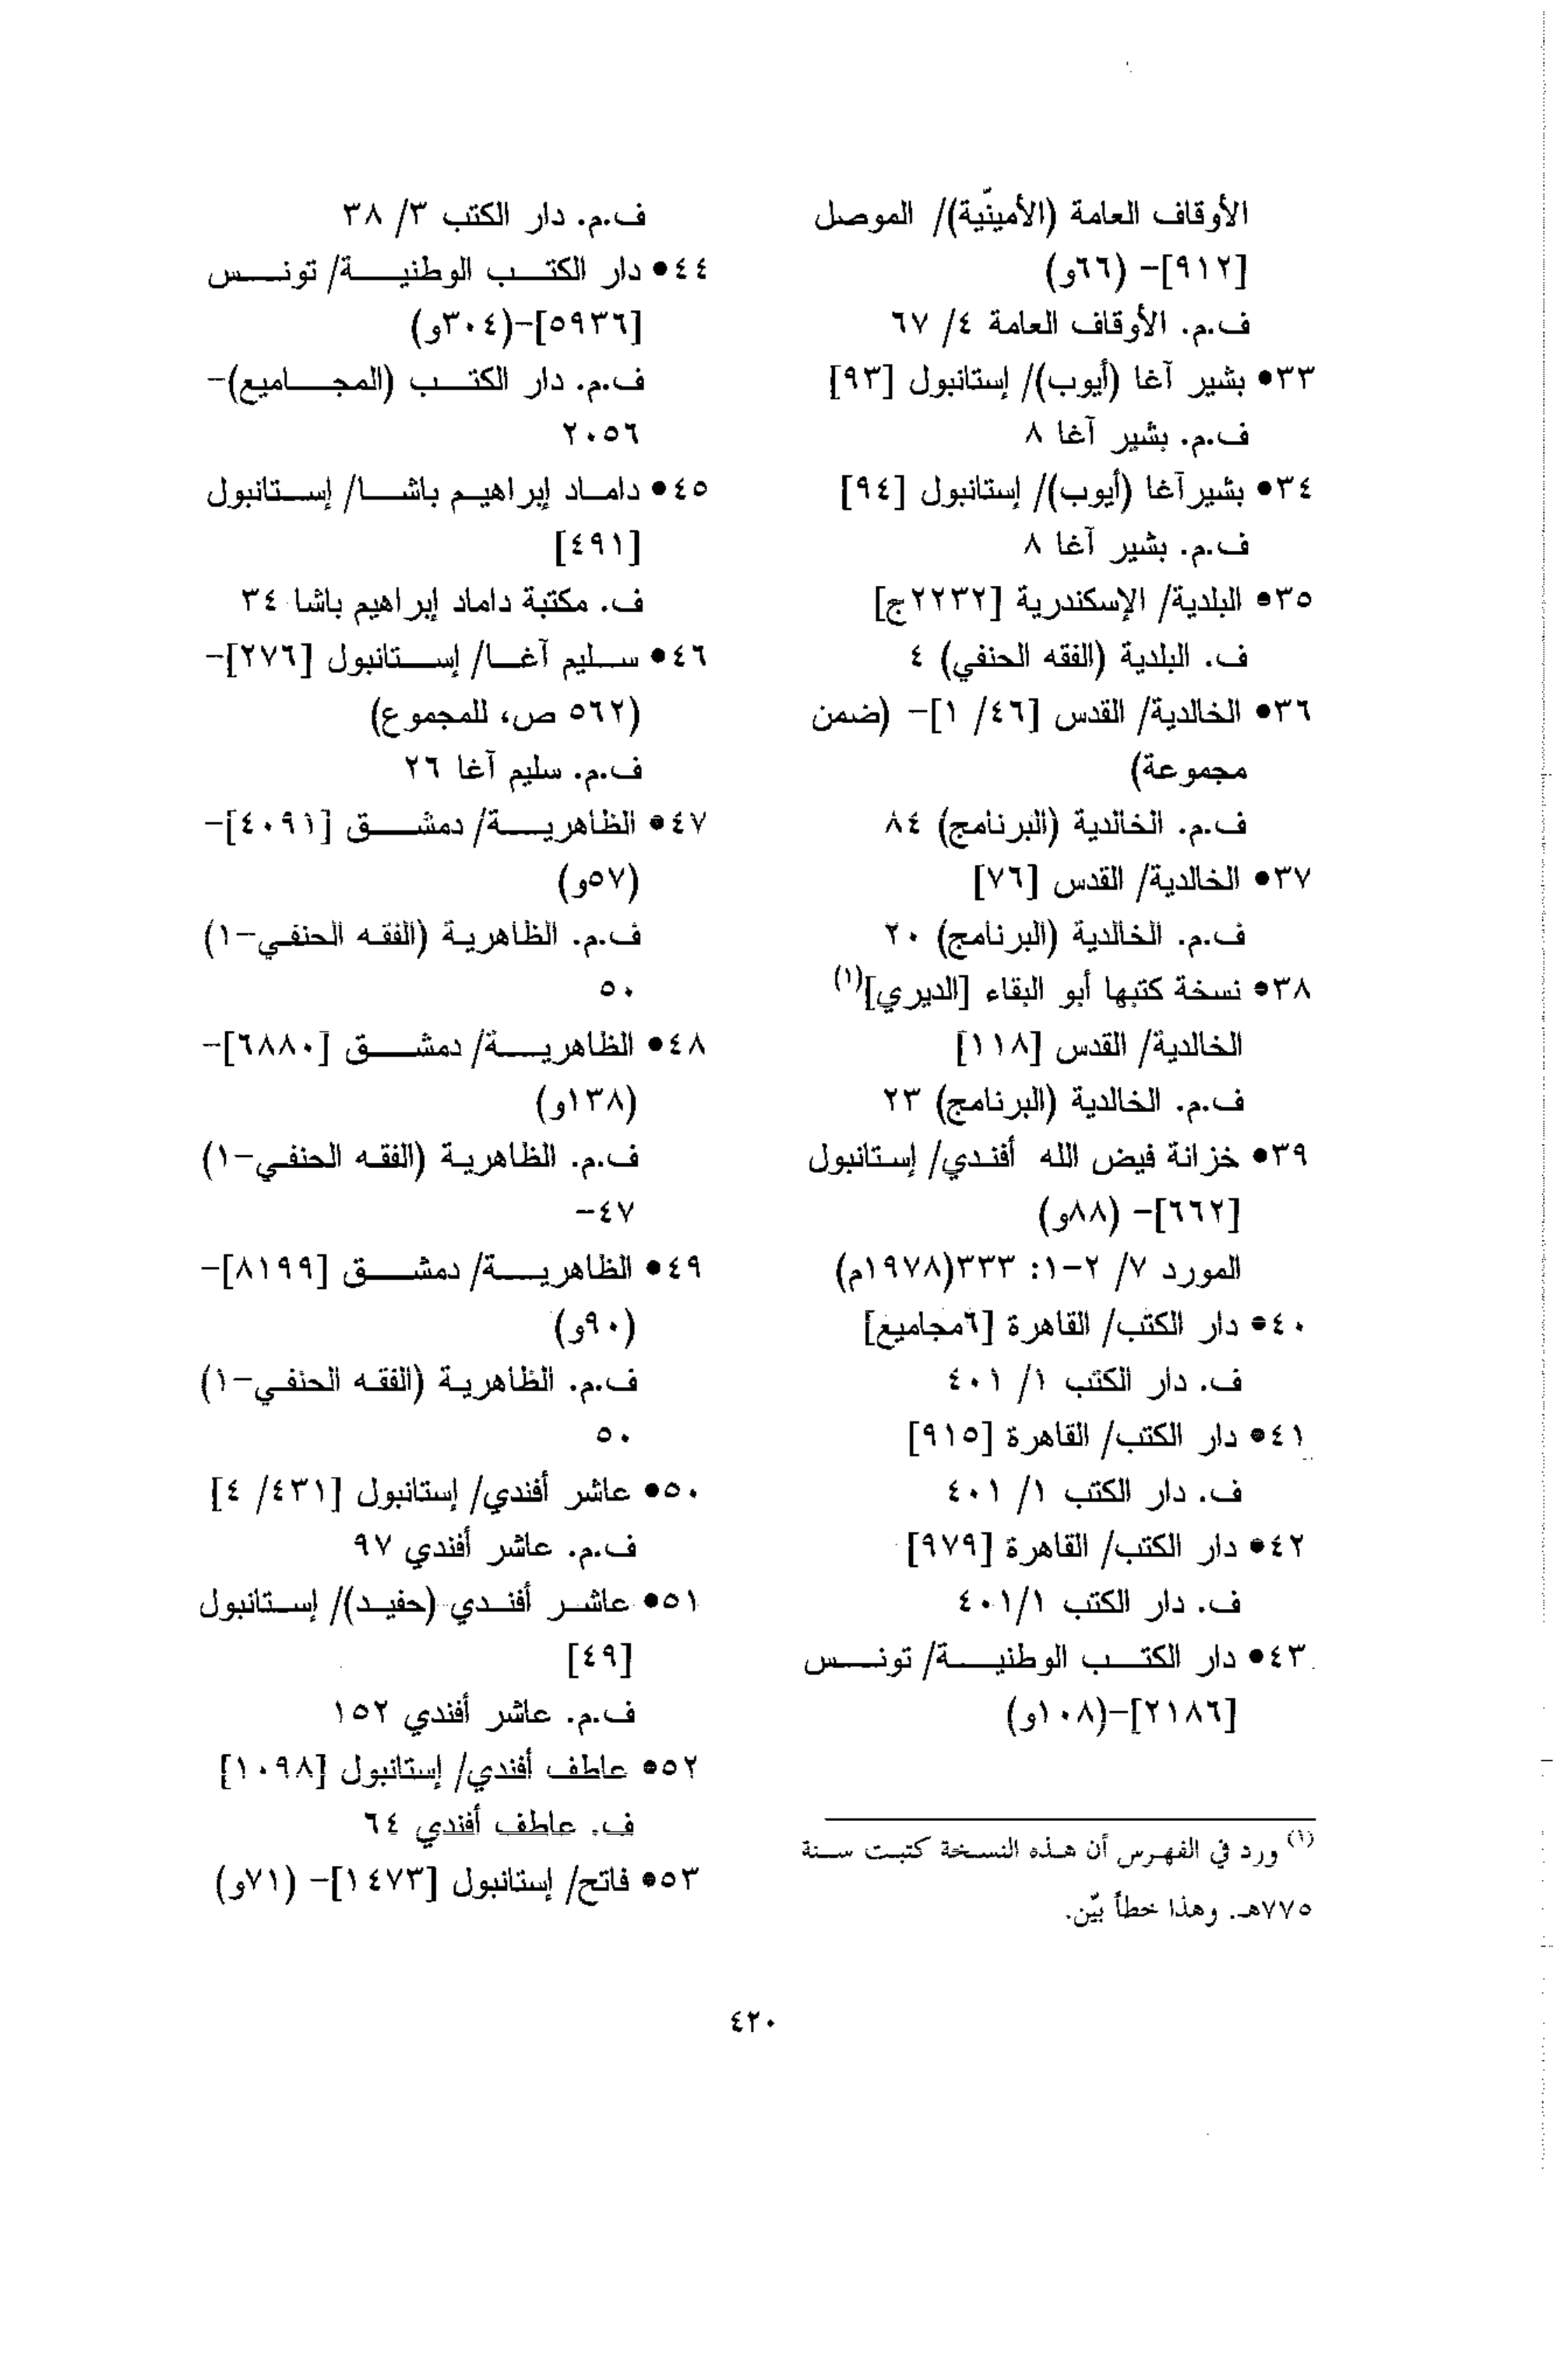 الأوقاف العامة (الأمينّية)/ الموصل
[٩١٢]- (٦٦و)
ف.م. الأوقاف العامة ٤/ ٦٧
٣٣• بشير آغا (أيوب)/ إستانبول [٩٣]
ف.م. بشير آغا ٨
٣٤• بشيرآغا (أيوب)/ إستانبول [٩٤]
ف.م. بشير آغا ٨
٣٥• البلدية/ الإسكندرية [٢٢٣٢ج]
ف. البلدية (الفقه الحنفي) ٤
٣٦• الخالدية/ القدس [٤٦/ ١]- (ضمن
مجموعة)
ف.م. الخالدية (البرنامج) ٨٤
٣٧• الخالدية/ القدس [٧٦]
ف.م. الخالدية (البرنامج) ٢٠
٣٨• نسخة كتبها أبو البقاء [الديري](١)
الخالدية/ القدس [١١٨]
ف.م. الخالدية (البرنامج) ٢٣
٣٩• خزانة فيض الله أفندي/ إستانبول
[٦٦٢]- (٨٨و)
المورد ٧/ ٢-١: ٣٣٣(١٩٧٨م)
٤٠• دار الكتب/ القاهرة [٦مجاميع]
ف. دار الكتب ١/ ٤٠١
٤١• دار الكتب/ القاهرة [٩١٥]
ف. دار الكتب ١/ ٤٠١
٤٢• دار الكتب/ القاهرة [٩٧٩]
ف. دار الكتب ٤٠١/١
٤٣• دار الكتب الوطنية/ تونس
[٢١٨٦]-(١٠٨و)
(١) ورد في الفهرس أن هذه النسخة كتبت سنة
٧٧٥هـ. وهذا خطأ بيّن.
ف.م. دار الكتب ٣/ ٣٨
٤٤• دار الكتب الوطنية/ تونس
[٥٩٣٦]-(٣٠٤و)
ف.م. دار الكتب (المجاميع)-
٢٠٥٦
٤٥• داماد إبراهيم باشا/ إستانبول
[٤٩١]
ف. مكتبة داماد إبراهيم باشا ٣٤
٤٦• سليم آغا/ إستانبول [٢٧٦]-
(٥٦٢ ص، للمجموع)
ف.م. سليم آغا ٢٦
٤٧• الظاهرية/ دمشق [٤٠٩١]-
(٥٧و)
ف.م. الظاهرية (الفقه الحنفي-١)
٥٠
٤٨• الظاهرية/ دمشق [٦٨٨٠]-
(١٣٨و)
ف.م. الظاهرية (الفقه الحنفي-١)
٤٧-
٤٩• الظاهرية/ دمشق [٨١٩٩]-
(٩٠و)
ف.م. الظاهرية (الفقه الحنفي-١)
٥٠
٥٠• عاشر أفندي/ إستانبول [٤٣١/ ٤]
ف.م. عاشر أفندي ٩٧
٥١• عاشر أفندي (حفيد)/ إستانبول
[٤٩]
ف.م. عاشر أفندي ١٥٢
٥٢• عاطف أفندي/ إستانبول [١٠٩٨]
ف. عاطف أفندي ٦٤
٥٣• فاتح/ إستانبول [١٤٧٣]- (٧١و)
٤٢٠